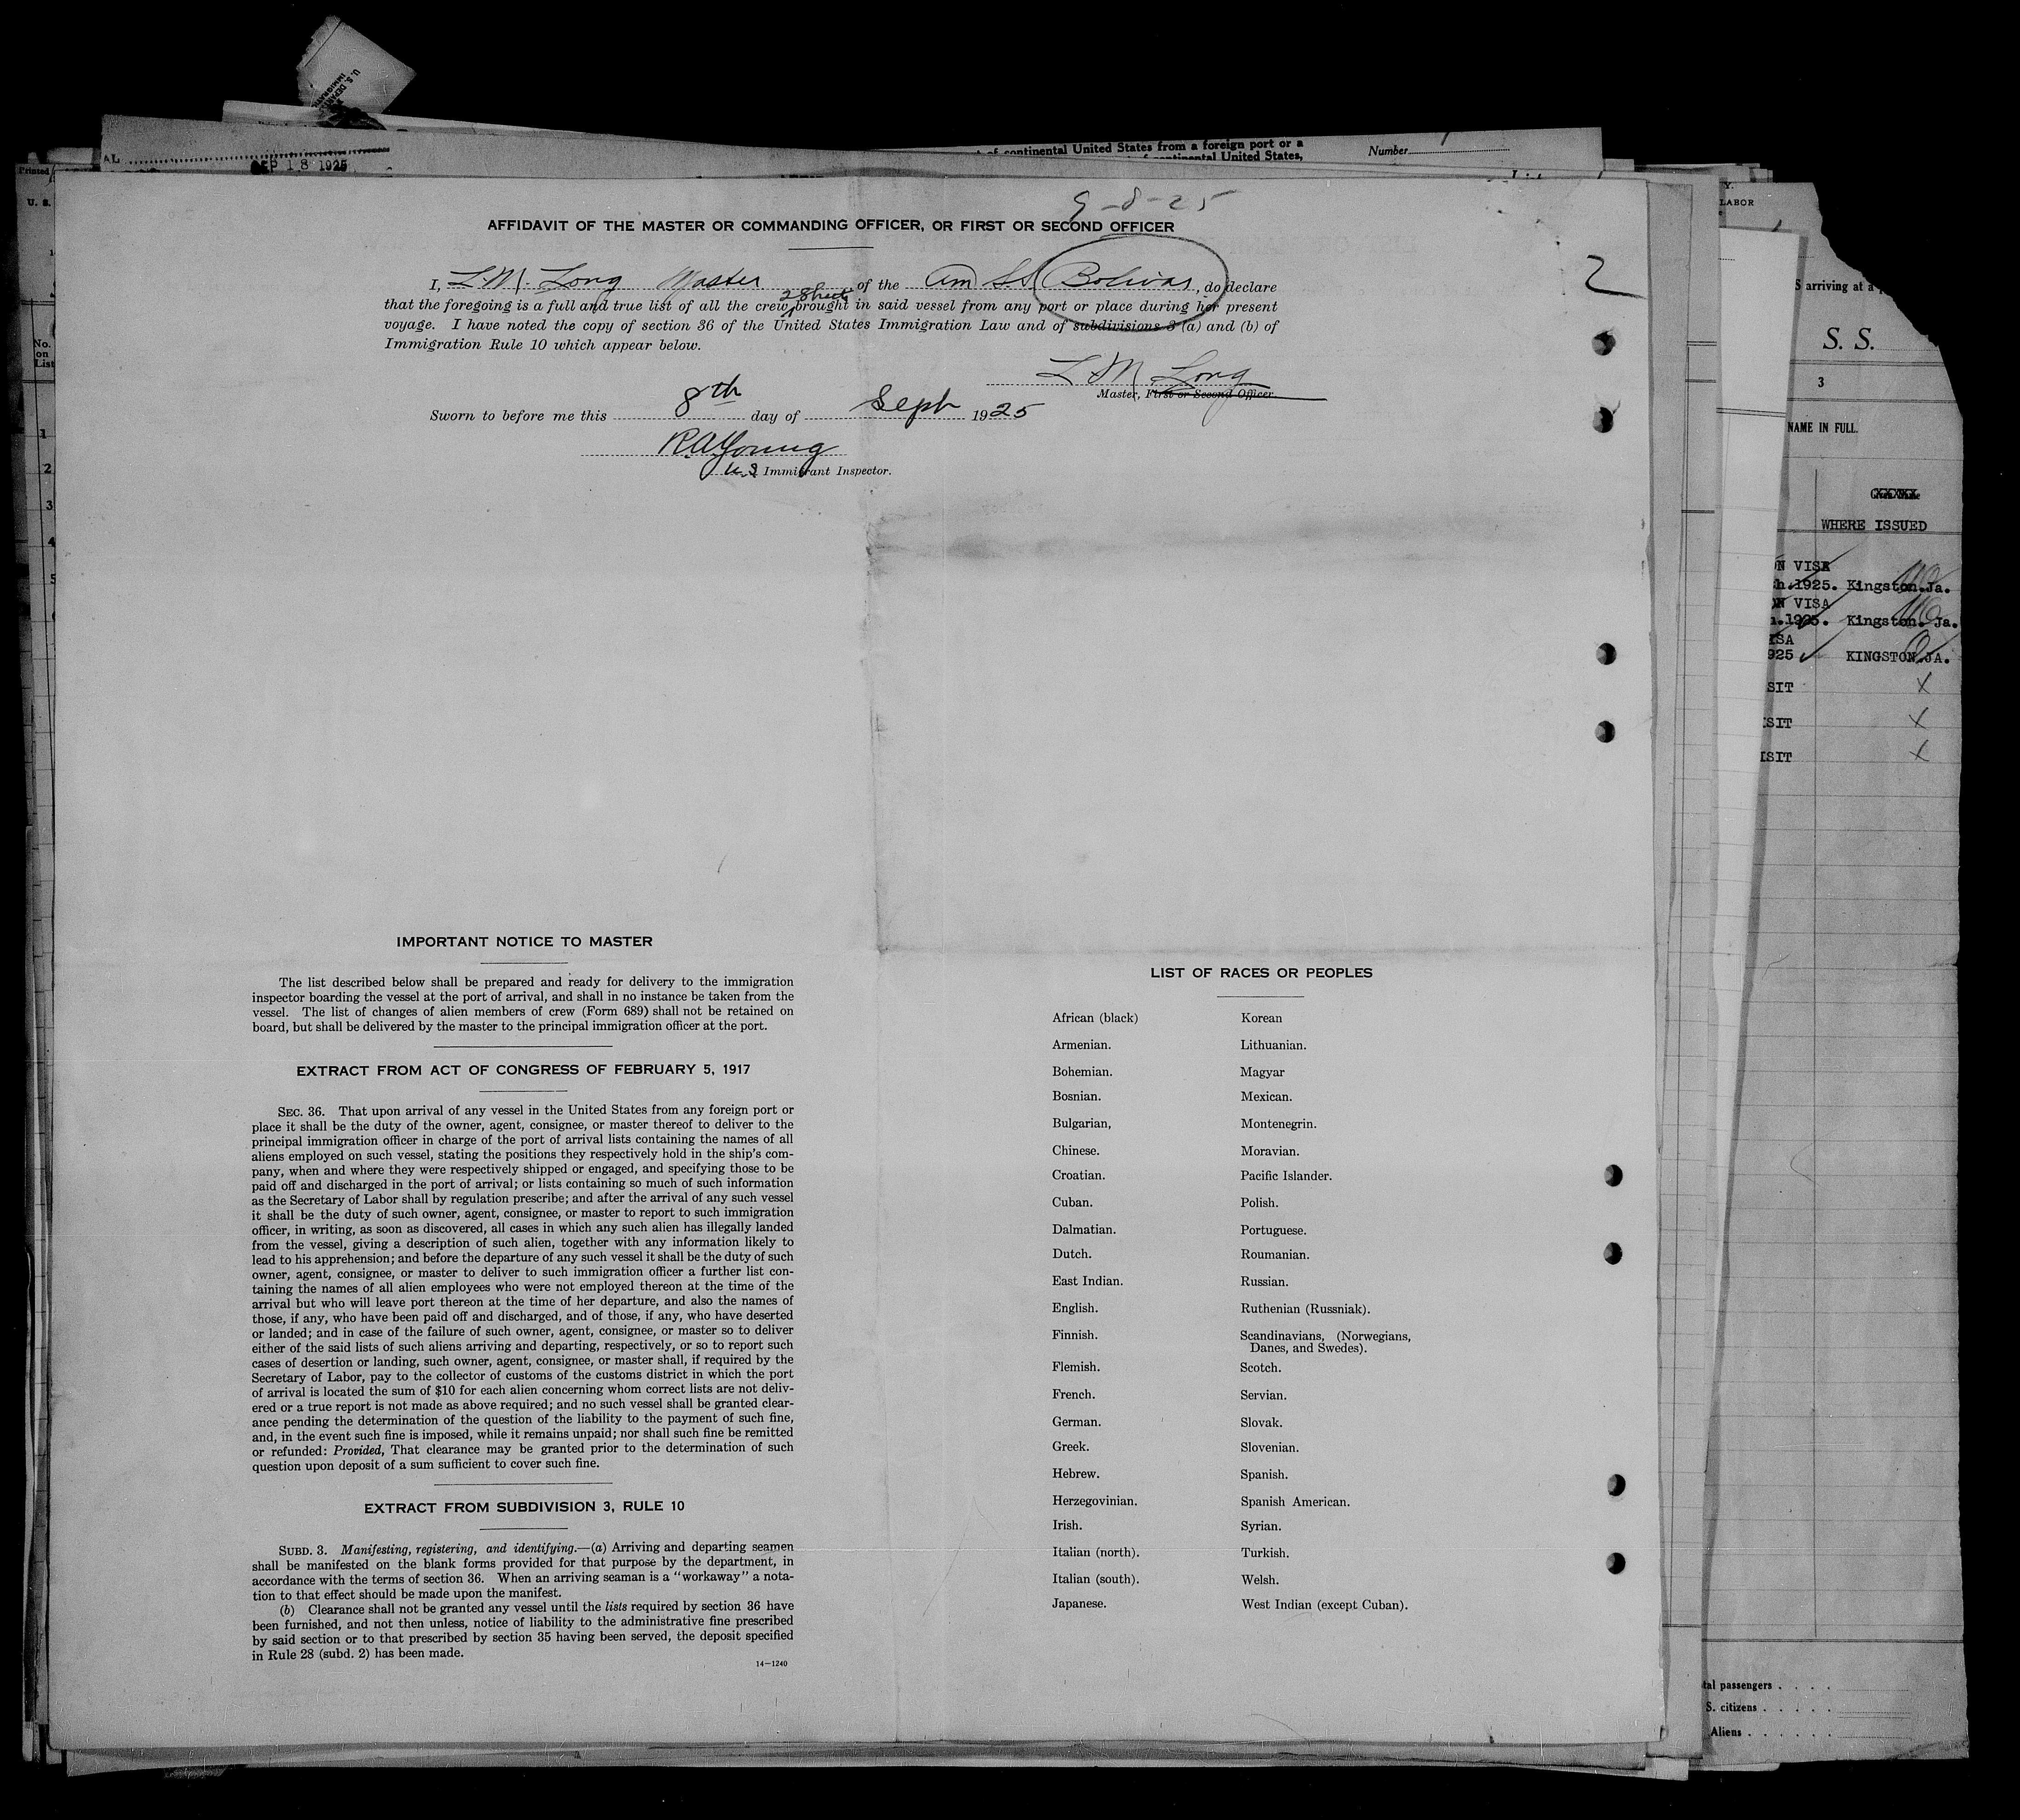 U. S. DEPART
IMMIGRAT
AL
SEP 18 1925
of continental United States from a foreign port or a
of continental United States,
Number
Printed
U. S.
9-8-25
AFFIDAVIT OF THE MASTER OR COMMANDING OFFICER, OR FIRST OR SECOND OFFICER
2
I, L.M. Long Master of the Am SS Bolivar, do declare
2 Sheets
that the foregoing is a full and true list of all the crew brought in said vessel from any port or place during her present
voyage. I have noted the copy of section 36 of the United States Immigration Law and of subdivisions 3 (a) and (b) of
Immigration Rule 10 which appear below.
L M Long
Master, First or Second Officer.
Sworn to before me this 8th day of Sept 1925
R.A. Young
U.S. Immigrant Inspector.
IMPORTANT NOTICE TO MASTER
The list described below shall be prepared and ready for delivery to the immigration
inspector boarding the vessel at the port of arrival, and shall in no instance be taken from the
vessel. The list of changes of alien members of crew (Form 689) shall not be retained on
board, but shall be delivered by the master to the principal immigration officer at the port.
EXTRACT FROM ACT OF CONGRESS OF FEBRUARY 5, 1917
SEC. 36. That upon arrival of any vessel in the United States from any foreign port or
place it shall be the duty of the owner, agent, consignee, or master thereof to deliver to the
principal immigration officer in charge of the port of arrival lists containing the names of all
aliens employed on such vessel, stating the positions they respectively hold in the ship's com-
pany, when and where they were respectively shipped or engaged, and specifying those to be
paid off and discharged in the port of arrival; or lists containing so much of such information
as the Secretary of Labor shall by regulation prescribe; and after the arrival of any such vessel
it shall be the duty of such owner, agent, consignee, or master to report to such immigration
officer, in writing, as soon as discovered, all cases in which any such alien has illegally landed
from the vessel, giving a description of such alien, together with any information likely to
lead to his apprehension; and before the departure of any such vessel it shall be the duty of such
owner, agent, consignee, or master to deliver to such immigration officer a further list con-
taining the names of all alien employees who were not employed thereon at the time of the
arrival but who will leave port thereon at the time of her departure, and also the names of
those, if any, who have been paid off and discharged, and of those, if any, who have deserted
or landed; and in case of the failure of such owner, agent, consignee, or master so to deliver
either of the said lists of such aliens arriving and departing, respectively, or so to report such
cases of desertion or landing, such owner, agent, consignee, or master shall, if required by the
Secretary of Labor, pay to the collector of customs of the customs district in which the port
of arrival is located the sum of $10 for each alien concerning whom correct lists are not deliv-
ered or a true report is not made as above required; and no such vessel shall be granted clear-
ance pending the determination of the question of the liability to the payment of such fine,
and, in the event such fine is imposed, while it remains unpaid; nor shall such fine be remitted
or refunded: Provided, That clearance may be granted prior to the determination of such
question upon deposit of a sum sufficient to cover such fine.
EXTRACT FROM SUBDIVISION 3, RULE 10
SUBD. 3. Manifesting, registering, and identifying.—(a) Arriving and departing seamen
shall be manifested on the blank forms provided for that purpose by the department, in
accordance with the terms of section 36. When an arriving seaman is a "workaway" a nota-
tion to that effect should be made upon the manifest.
(b) Clearance shall not be granted any vessel until the lists required by section 36 have
been furnished, and not then unless, notice of liability to the administrative fine prescribed
by said section or to that prescribed by section 35 having been served, the deposit specified
in Rule 28 (subd. 2) has been made.
14—1240
LIST OF RACES OR PEOPLES
African (black) Korean
Armenian. Lithuanian.
Bohemian. Magyar
Bosnian. Mexican.
Bulgarian, Montenegrin.
Chinese. Moravian.
Croatian. Pacific Islander.
Cuban. Polish.
Dalmatian. Portuguese.
Dutch. Roumanian.
East Indian. Russian.
English. Ruthenian (Russniak).
Finnish. Scandinavians, (Norwegians,
Danes, and Swedes).
Flemish. Scotch.
French. Servian.
German. Slovak.
Greek. Slovenian.
Hebrew. Spanish.
Herzegovinian. Spanish American.
Irish. Syrian.
Italian (north). Turkish.
Italian (south). Welsh.
Japanese. West Indian (except Cuban).
No.
on
List
1
2
3
4
5
LABOR
S arriving at a
S. S.
3
NAME IN FULL.
WHERE ISSUED
ON VISA
ch.1925. Kingston.Ja.
ON VISA
Kingston. Ja.
ISA
925 KINGSTON.JA.
SIT X
ISIT X
ISIT X
tal passengers
S. citizens
Aliens